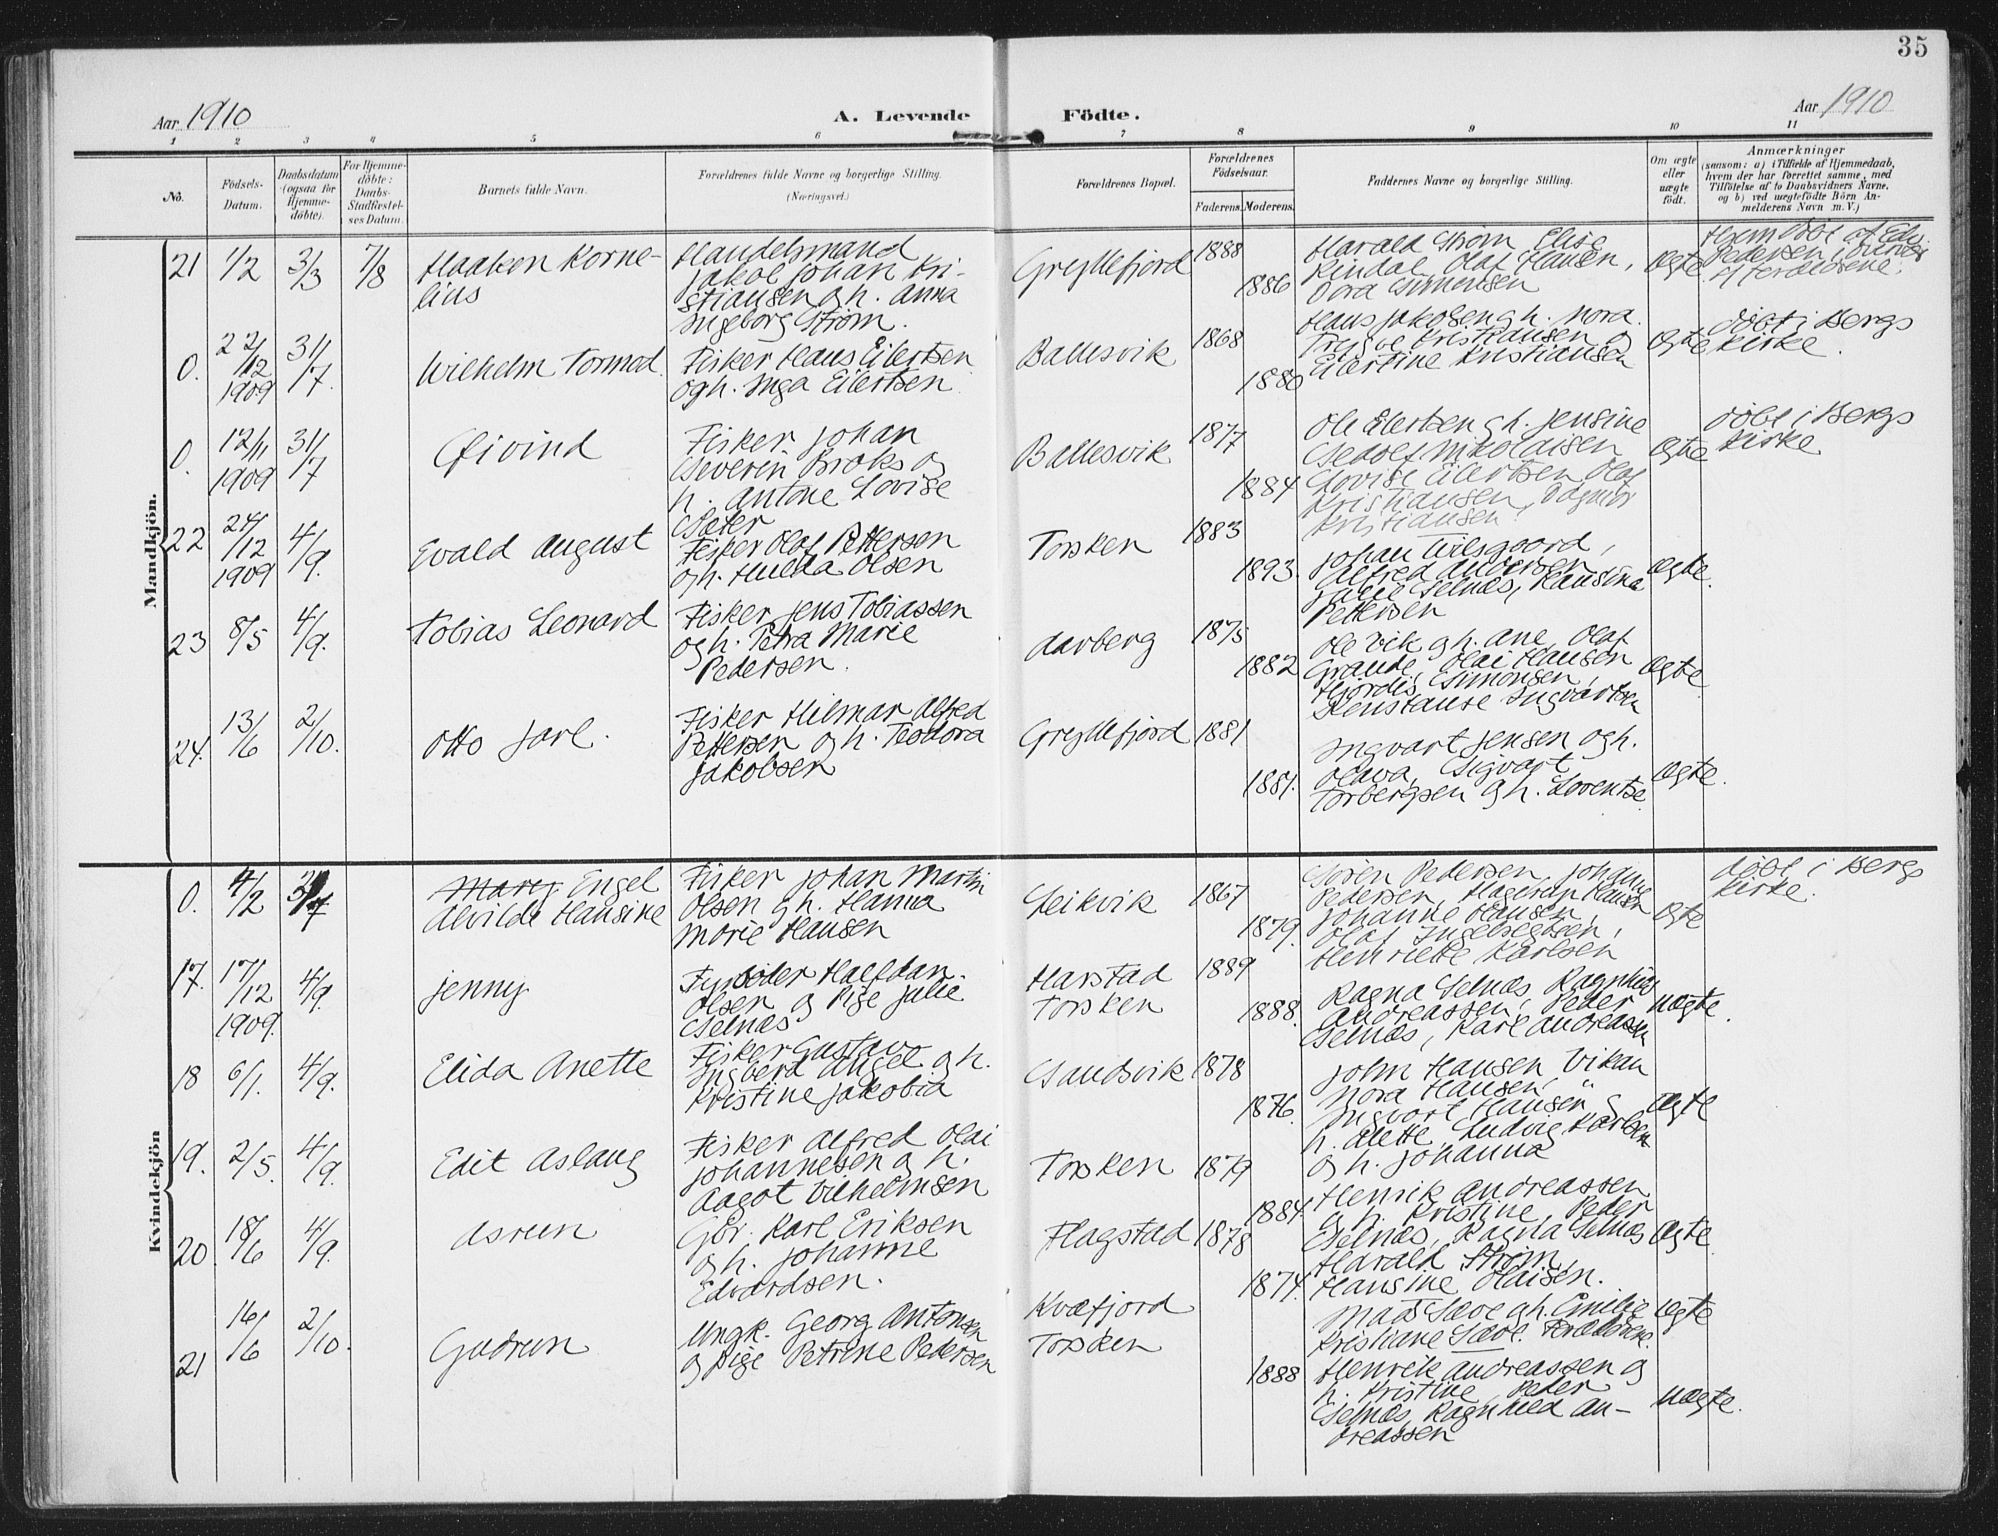 35
Aar 1910
A. Levende
Födte.
Aar 1910
1 2 3 4 5 6 7 8 9 10 11
No.
Födsels-
Datum.
Daabsdatum
(ogsaa for
Hjemme-
döbte).
For Hjemme-
döbte:
Daabs-
Stadfæstel-
ses Datum.
Barnets fulde Navn.
Forældrenes fulde Navne og borgerlige Stilling.
(Næringsvei.)
Forældrenes Bopæl.
Forældrenes
Födselsaar.
Faderens. Moderens.
Faddernes Navne og borgerlige Stilling.
Om ægte
eller
uægte
födt.
Anmærkninger
(saasom: a) i Tilfælde af Hjemmedaab,
hvem der har forrettet samme, med
Tilföielse af to Daabsvidners Navne,
og b) ved uægtefödte Börn An-
melderens Navn m. V.)
Mandkjön.
21 1/2 3/3 7/8
Haaken Korne-
lius
Handelsmand
Jakob Johan Kri-
stiansen og h. Anna
Ingeborg Strøm.
Gryllefjord
1888
1886
Harald Strøm Elise
Rindal, Olaf Hansen,
Dora Simonsen
Ægte
Hjem døbt af Edv.
Pedersen i
forældrene.
0. 22/12 1909 31/7
Wilhelm Tormod.
Fisker Hans Eilertsen
og h. Inga Eilertsen
Ballesvik
1868
1880
Hans Jakobsen og h. Nora.
Trygve Kristiansen og
Eilertine Kristiansen
Ægte
Døbt i Bergs
Kirke.
0. 12/11 1909 31/7
Øivind
Fisker Johan
Severin Broks og
h. Antone Lovise
Sæter
Ballesvik
1877
1884
Ole Eilertsen og h. Jensine
Sedolf Nikolaisen
Lovise Eilertsen Olaf
Kristiansen, Dagmar
Kristiansen.
Ægte
Døbt i Bergs
Kirke
22 24/12 1909 4/9.
Evald August
Fisker Olaf Pettersen
og h. Hulda Olsen
Torsken
1883
1893.
Johan
Alfred Andersen
Julie Selnæs, Hansina
Pettersen
Ægte.
23 8/5 4/9.
Tobias Leonard
Fisker Jens Tobiassen
og h. Petra Marie
Pedersen.
Aarberg
1875
1882
Ole Vik og h. Ane, Olaf
Grande, Olai Hansen
Hjørdis Simonsen,
Konstanse
Ægte
24. 13/6 2/10.
Otto Jarl.
Fisker Hilmar Alfred
Pettersen og h. Teodora
Jakobsen
Gryllefjord
1881
1881.
Ingvart Jensen og h.
Olava, Sigvart
Torbergsen og h. Lorentse.
Ægte.
Kvindekjön
0. 4/2
Mary Engel
Alvilde Hansine
Fisker Johan Martin
Olsen og h. Hanna
Marie Hansen
Leikvik
1867
1879.
Søren Pedersen, Johanne
Pedersen, Hagerup Hansen
Johanne Hansen,
Olaf Ingebrigtsen,
Henriette Karlsen
Ægte
Døbt i Bergs
Kirke.
17. 17/12 1909. 4/9.
Jenny
Halfdan
Olsen og Pige Julie
Selnæs
Harstad
Torsken
1889
1888.
Ragna Selnæs Ragnhild
Andreassen, Peder
Selnæs, Karl Andreassen
Uægte.
18 6/1. 4/9.
Elida Anette
Fisker Gustav
Ingberd Angel og h.
Kristine Jakobia
Sandsvik
1878
1876.
John Hansen Vikan
Nora Hansen, "
Ingvart Hansen og
h. Alette, Ludvig Karlsen
og h. Johanna
Ægte
19. 2/5. 4/9.
Edit Aslaug
Fisker Alfred Olai
Johannesen og h.
Aagot Vilhelmsen
Torsken
1879
1884.
Henrik Andreassen
og h. Kristine, Peder
Selnæs, Ragna Selnæs
Harald Strøm,
Hansine Olaisen.
Ægte.
20. 18/6 4/9.
Asrun
Gbr. Karl Eriksen
og h. Johanne
Edvardsen.
Flagstad
1878
1874.
Mads Sæve og h. Emilie
Kristiane Sæve Forældrene.
Ægte
21 16/6 2/10.
Gudrun
Ungk. Georg Antonsen
og Pige Petrine Pedersen
Kvæfjord
Torsken
1888
Henrik Andreassen og
h. Kristine, Peder
Selnæs, Ragnhild An-
dreassen
Uægte.